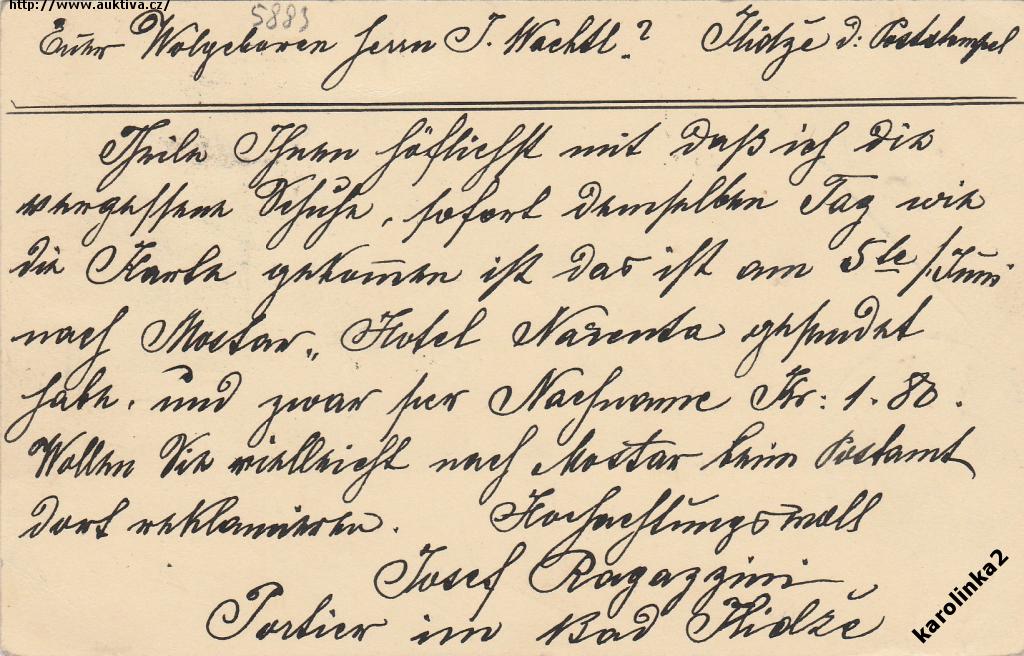 http://www.auktiva.cz/
5883
Euer Wolgeboren Herrn J. Wachtl.? Ilidže d: Poststempel
Theile Ihnen höflichst mit daß ich die
vergessene Schuhe, sofort demselben Tag wie
die Karte gekommen ist das ist am 5te /Juni
nach Mostar„ Hotel Narenta gesendet
habe. und zwar per Nachname Kr: 1.80.
Wollen Sie vielleicht nach Mostar beim Postamt
dort reklamieren. Hochachtungsvoll
Josef Ragazzini
Portier im Bad Ilidže
karolinka2